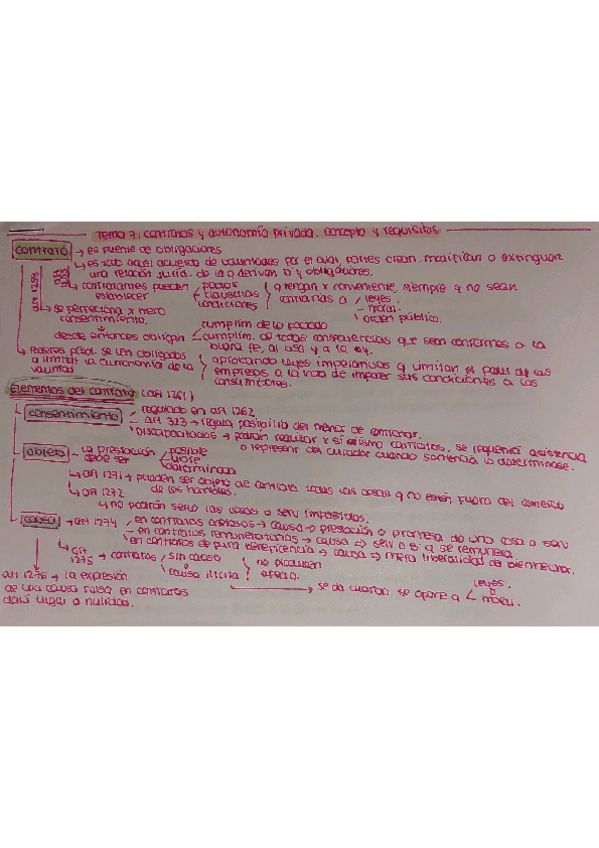 Tema 7: contratos y autonomía privada. concepto y requisitos
contrato → es fuente de obligaciones
↳ es todo aquel acuerdo de voluntades por el cual partes crean, modifican o extinguen
una relación juríd. de la q derivan D y obligaciones.
art 1255
↳ contratantes pueden establecer
pactos
cláusulas
condiciones
q tengan x conveniente, siempre q no sean
contrarias a
leyes
moral
orden público.
art 1258
↳ se perfecciona x mero
consentimiento.
desde entonces obligan
cumplim. de lo pactado
cumplim. de todas consecuencias que sean conformes a la
buena fe, al uso y a la ley.
↳ Poderes públ. se ven obligados
a limitar la autonomía de la
voluntad
aprobando leyes imperativas q limitan el poder de las
empresas a la hora de imponer sus condiciones a los
consumidores.
Elementos del contrato (art 1261)
consentimiento
regulado en art 1262
art 323 → regula posibilid del menor de contratar.
Discapacitados → podrán realizar x sí mismo contratos, se requerirá asistencia
o represent del curador cuando sentencia lo determinase.
objeto
La prestación
debe ser
posible
libre
determinada
↳ art 1271 → pueden ser objeto de contrato todas las cosas q no estén fuera del comercio
de los hombres.
↳ art 1272
↳ no podrán serlo las cosas o serv imposibles.
causa → art 1274
en contratos onerosos → causa → prestación o promesa de una cosa o serv
en contratos remuneratorios → causa → serv o B q se remunera.
en contratos de pura beneficencia → causa → mera liberalidad de bienhechor.
↳ art 1275 → contratos
sin causa
o
causa ilícita
no producen
efecto.
art 1276 → la expresión
de una causa falsa en contratos
dará lugar a nulidad.
se da cuando se opone a
leyes
o
moral.